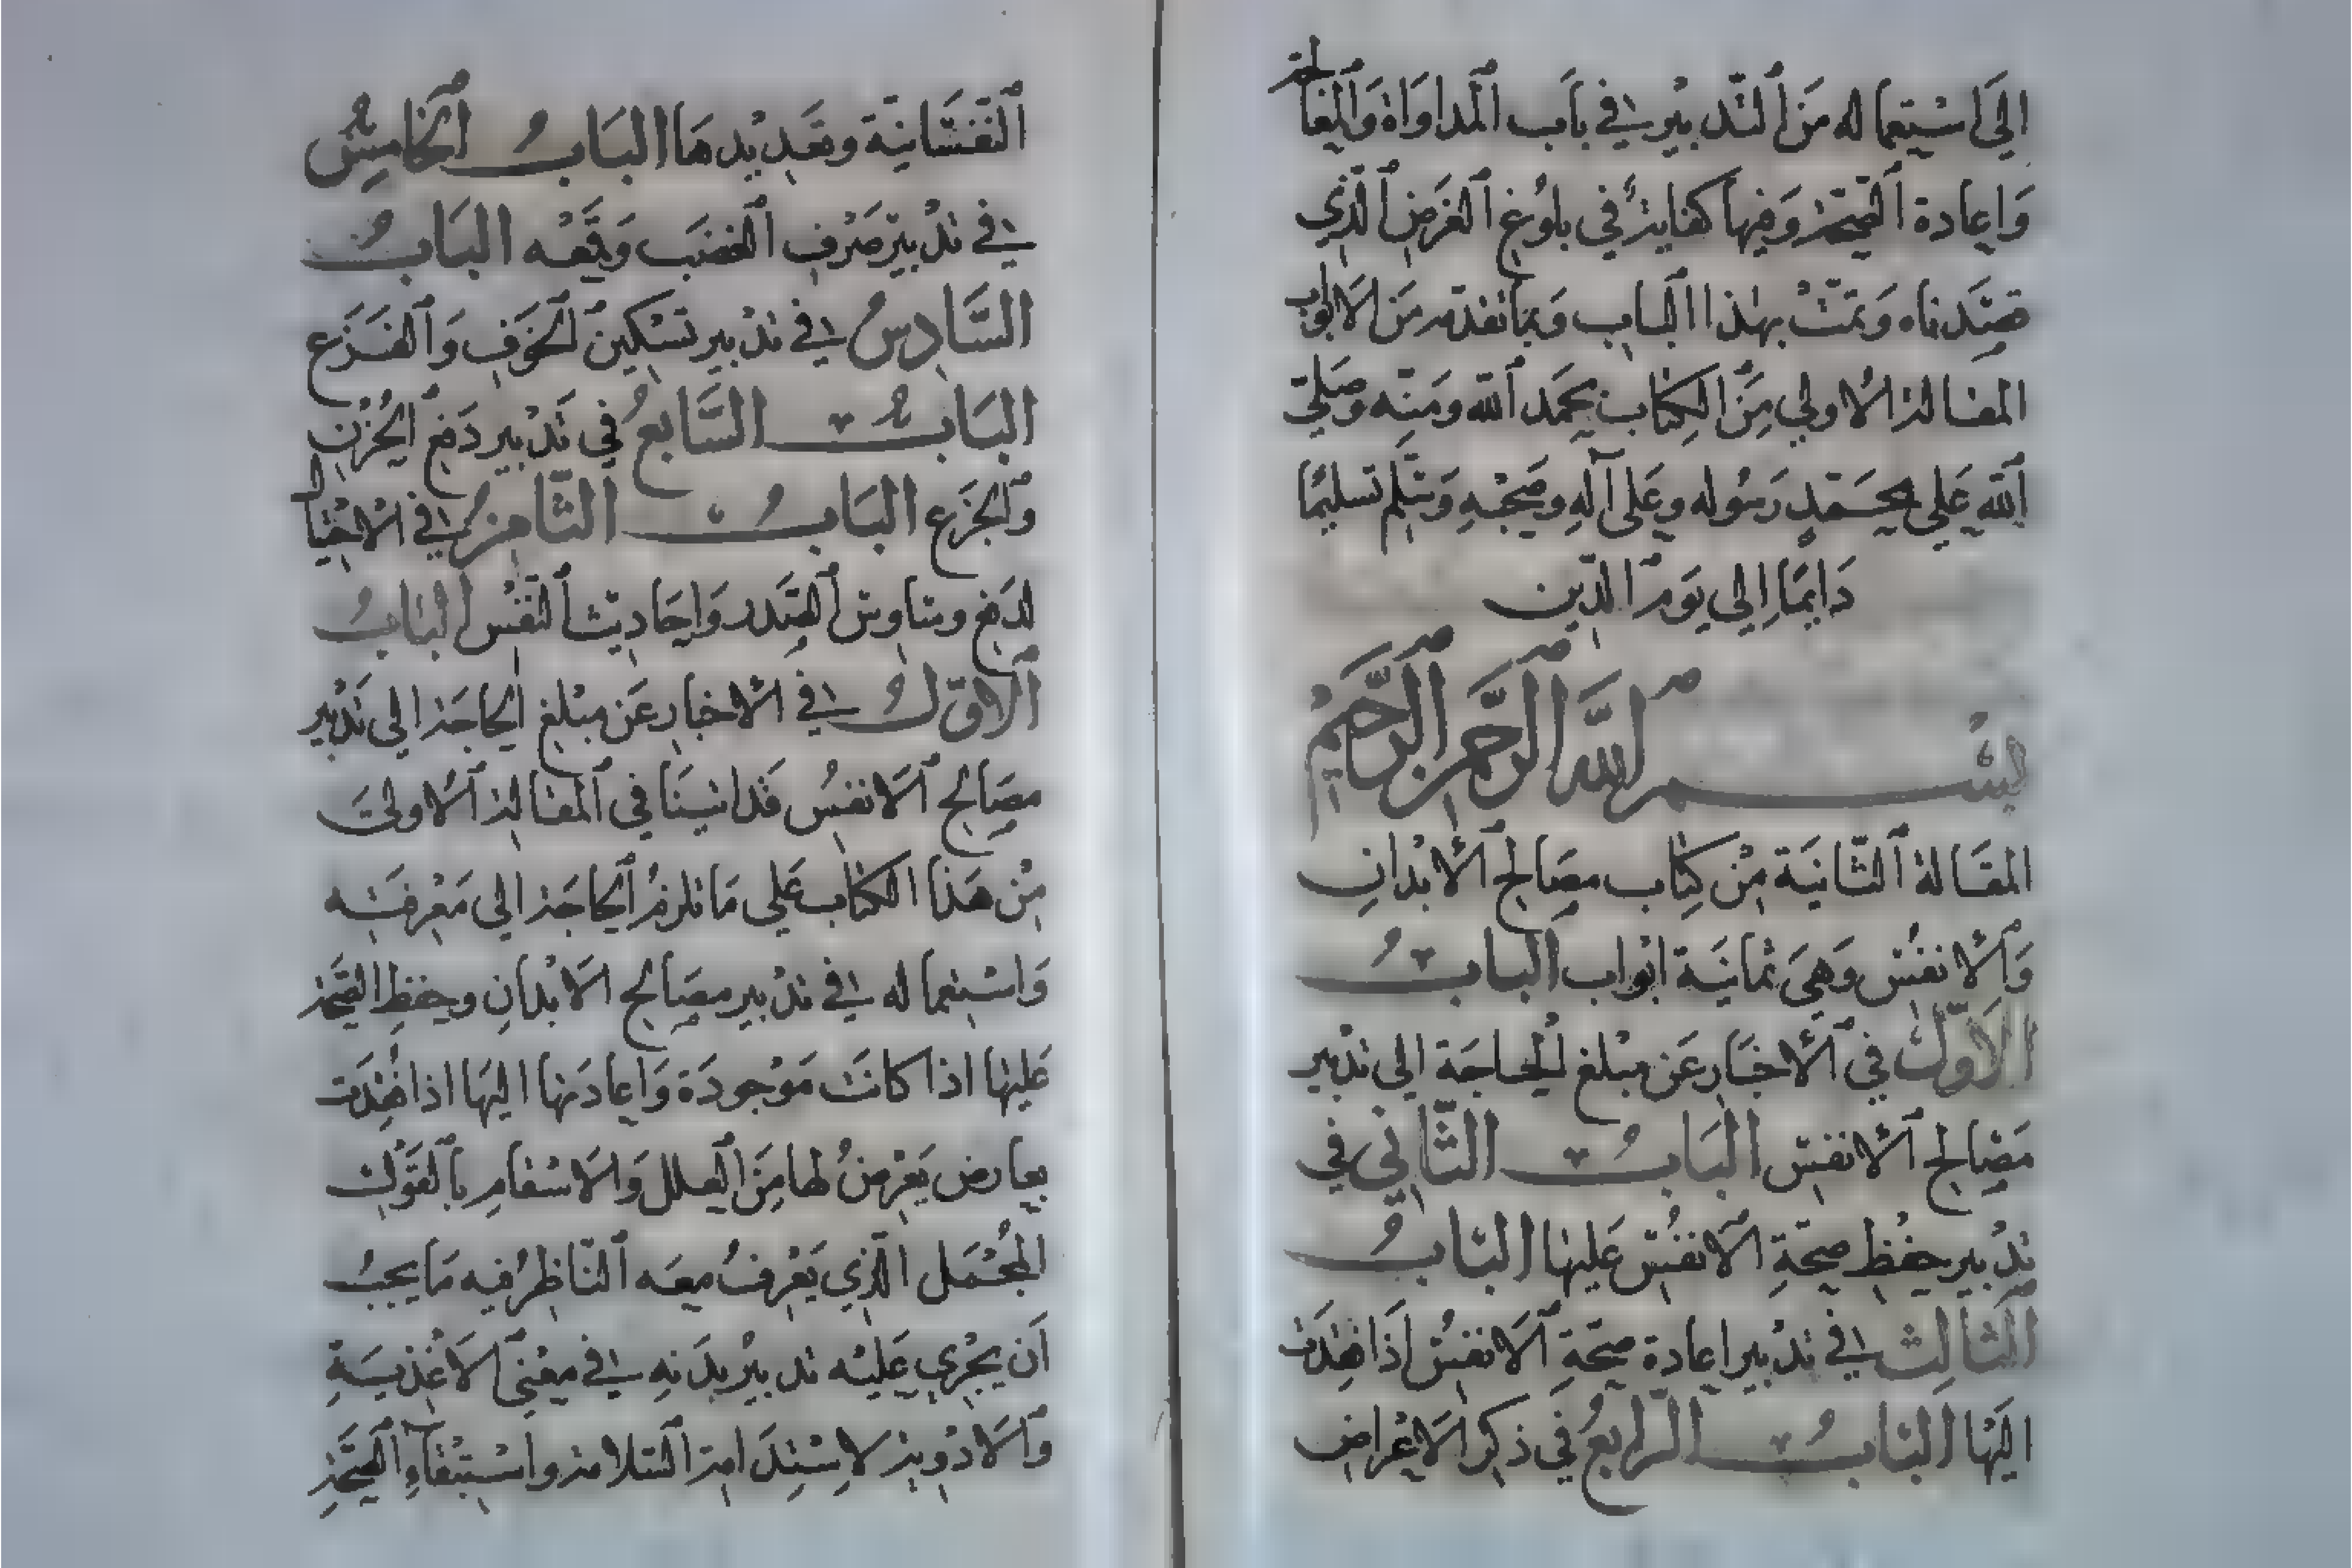 الي استعماله من التدبير في باب المداواة والمعالجة
واعادة الصحة وفيها كفاية في بلوغ الغرض الذي
قصدناه وتمت بهذا الباب وبما تقدمه من الابواب
المقالة الاولي من الكتاب بحمد الله ومنه وصلي
الله علي محمد رسوله وعلى آله وصحبه وسلم تسليما
دايما الي يوم الدين
بسم الله الرحمن الرحيم
المقالة الثانية من كتاب مصالح الأبدان
والأنفس وهي ثمانية ابواب الباب
الأول في الأخبار عن مبلغ الحاجة الي تدبير
مصالح الأنفس الباب الثاني في
تدبير حفظ صحة الانفس عليها الباب
الثالث في تدبير اعادة صحة الانفس اذا فقدت
اليها الباب الرابع في ذكر الاعراض
النفسانية وتعديدها الباب الخامس
في تدبير صرف الغضب وقمعه الباب
السادس في تدبير تسكين الخوف والفزع
الباب السابع في تدبير دفع الحزن
والجزع الباب الثامن في الاحتيال
لدفع وساوس الصدر واحاديث النفس الباب
الاول في الأخبار عن مبلغ الحاجة الي تدبير
مصالح الانفس قد اتينا في المقالة الاولى
من هذا الكتاب علي ما تلزم الحاجة الي معرفته
واستعماله في تدبير مصالح الابدان وحفظ الصحة
عليها اذا كانت موجودة واعادتها اليها اذا فقدت
بعارض يعرض لها من العلل والاسقام بالقول
المجمل الذي يعرف معه الناظر فيه ما يجب
ان يجري عليه تدبير بدنه في معنى الاغذية
والادوية لاستدامة السلامة واستبقاء الصحة